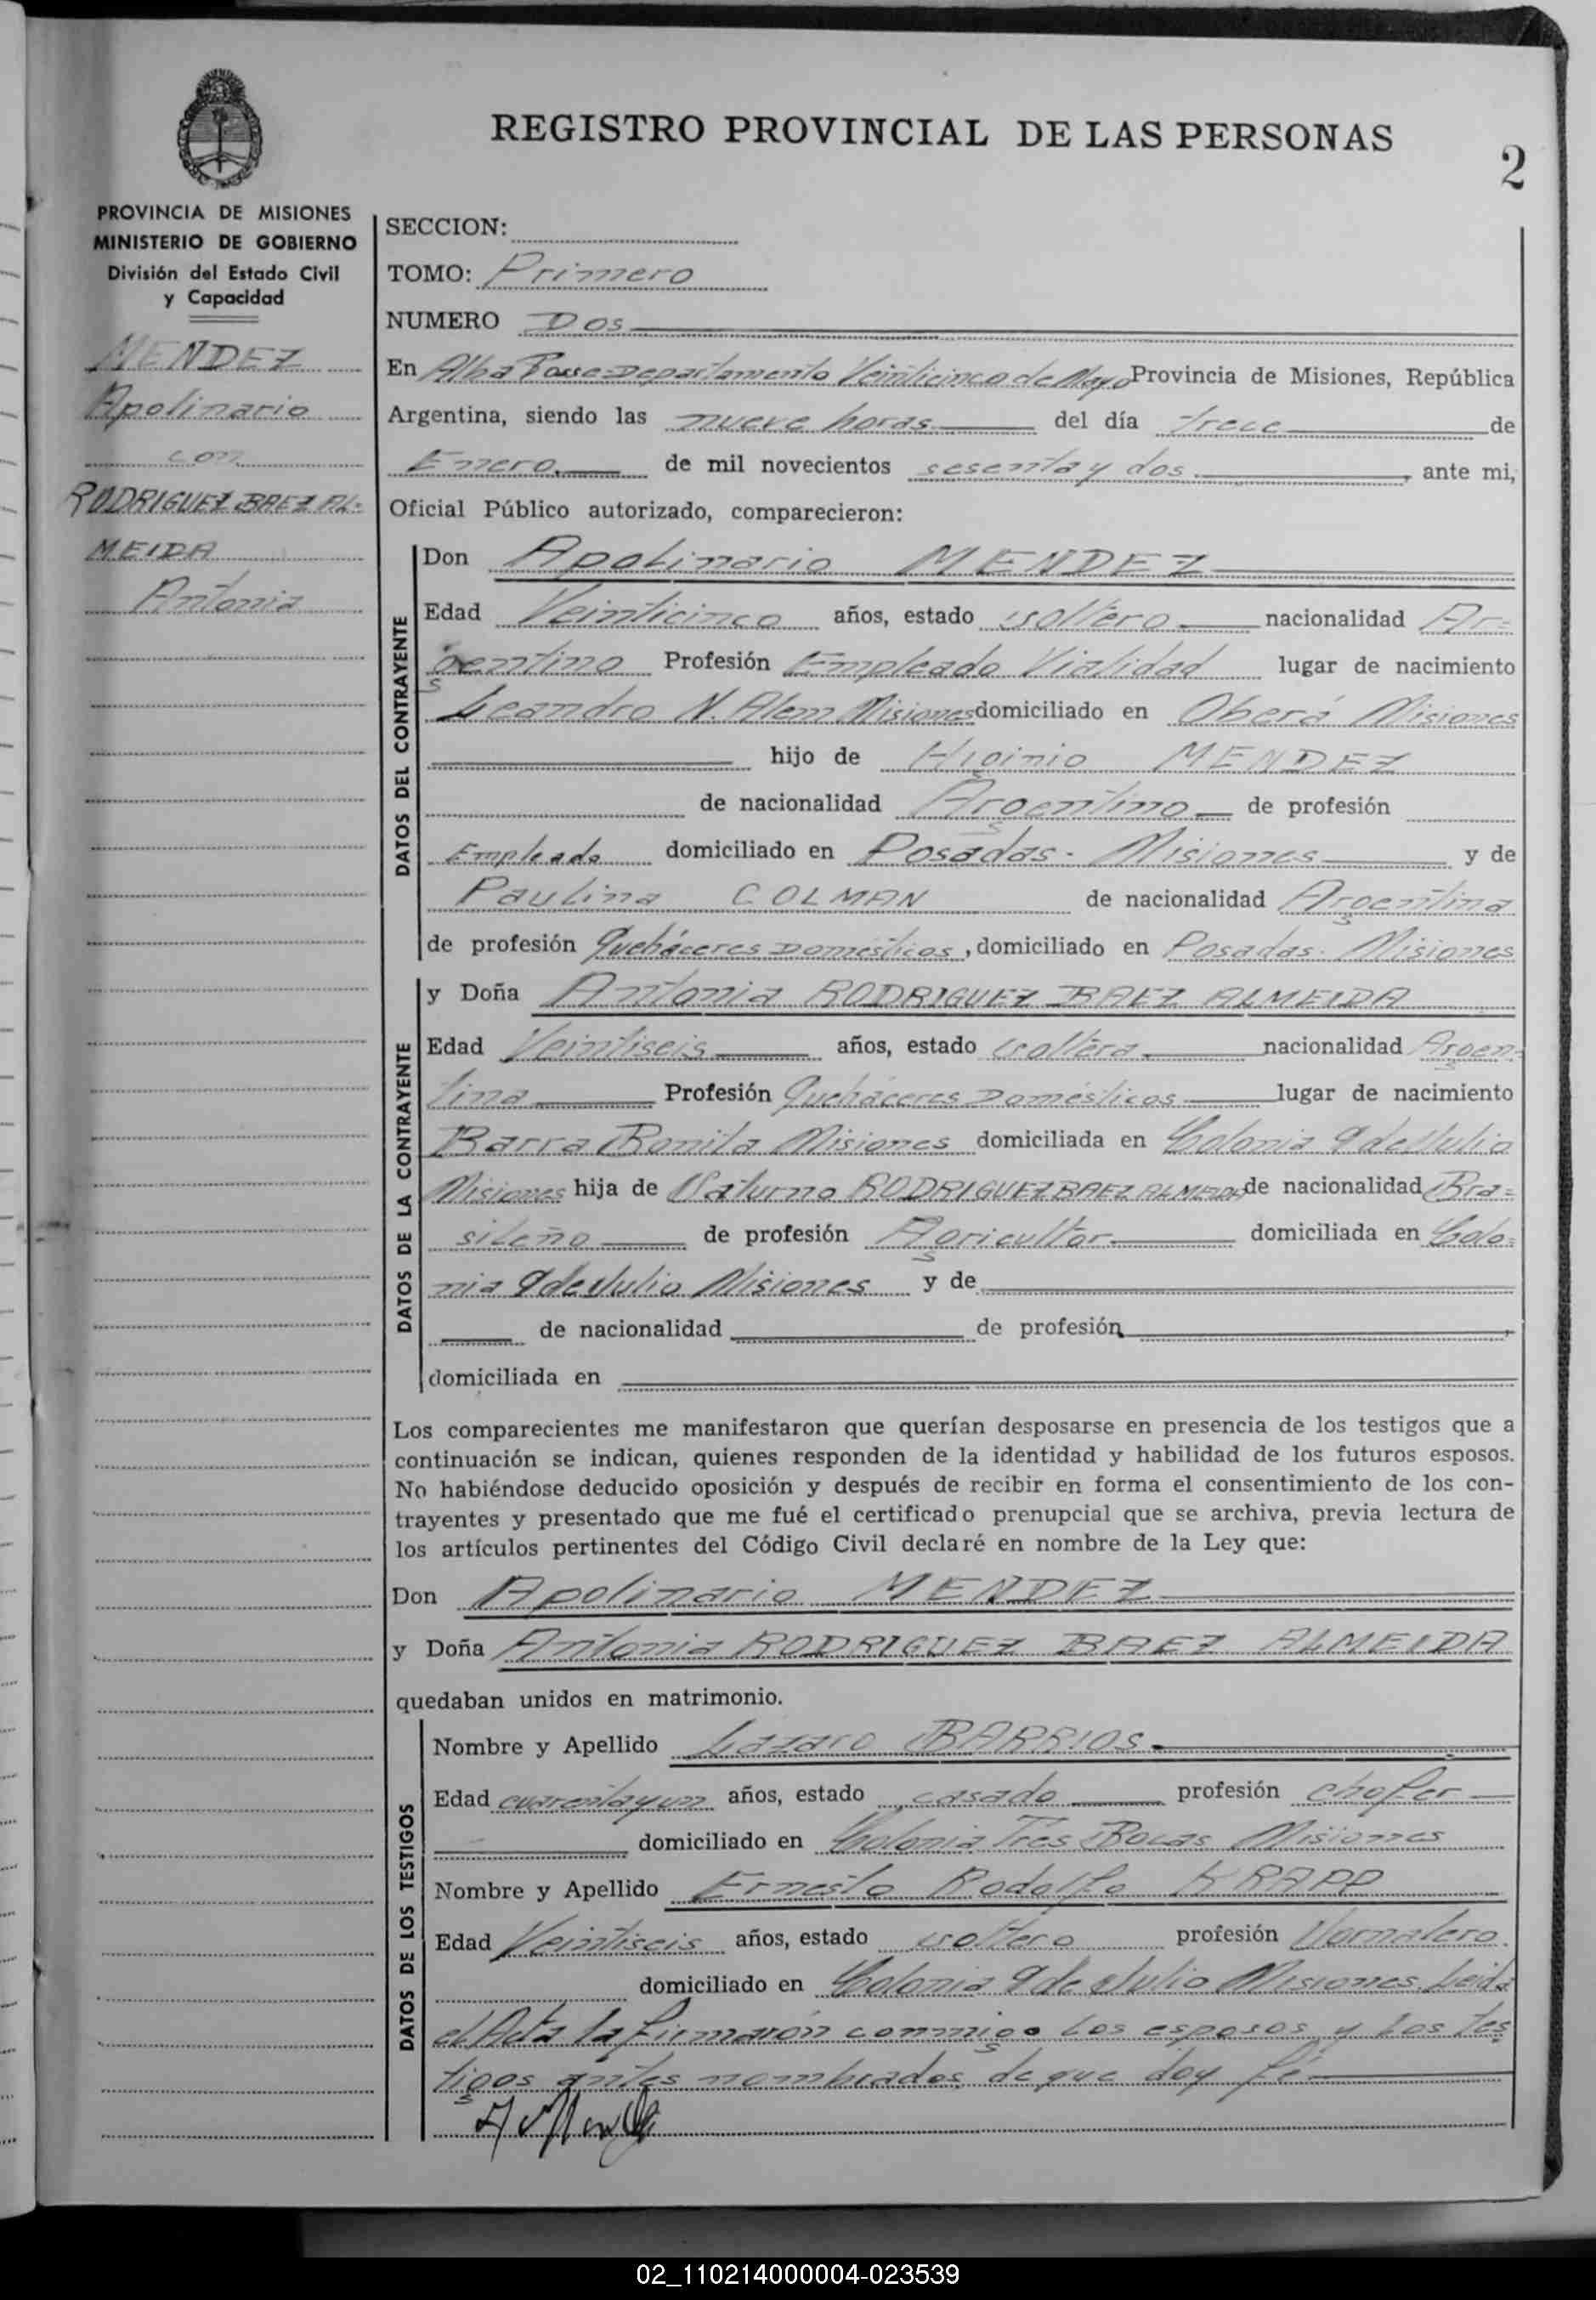 REGISTRO PROVINCIAL DE LAS PERSONAS
2
PROVINCIA DE MISIONES
MINISTERIO DE GOBIERNO
División del Estado Civil
y Capacidad
MENDEZ
Apolinario
con
RODRIGUEZ BAEZ AL=
MEIDA
Antonia
SECCION:
TOMO: Primero
NUMERO Dos
En Alba Posse Departamento Veinticinco de Mayo Provincia de Misiones, República
Argentina, siendo las nueve horas del día trece de
Enero de mil novecientos sesenta y dos, ante mi,
Oficial Público autorizado, comparecieron:
DATOS DEL CONTRAYENTE
Don Apolinario MENDEZ
Edad Veinticinco años, estado soltero nacionalidad Ar=
gentino Profesión Empleado Vialidad lugar de nacimiento
Leandro N. Alem Misiones domiciliado en Oberá Misiones
hijo de Higinio MENDEZ
de nacionalidad Argentino de profesión
Empleado domiciliado en Posadas - Misiones y de
Paulina COLMAN de nacionalidad Argentina
de profesión Quehaceres Domésticos, domiciliado en Posadas - Misiones
DATOS DE LA CONTRAYENTE
y Doña Antonia RODRIGUEZ BAEZ ALMEIDA
Edad Veintiseis años, estado soltera nacionalidad Argen=
tina Profesión Quehaceres Domésticos lugar de nacimiento
Barra Bonita Misiones domiciliada en Colonia 9 de Julio
Misiones hija de Saturno RODRIGUEZ BAEZ ALMEIDA de nacionalidad Bra=
sileño de profesión Agricultor domiciliada en Colo=
nia 9 de Julio Misiones y de
de nacionalidad de profesión,
domiciliada en
Los comparecientes me manifestaron que querían desposarse en presencia de los testigos que a
continuación se indican, quienes responden de la identidad y habilidad de los futuros esposos.
No habiéndose deducido oposición y después de recibir en forma el consentimiento de los con-
trayentes y presentado que me fué el certificado prenupcial que se archiva, previa lectura de
los artículos pertinentes del Código Civil declaré en nombre de la Ley que:
Don Apolinario MENDEZ
y Doña Antonia RODRIGUEZ BAEZ ALMEIDA
quedaban unidos en matrimonio.
DATOS DE LOS TESTIGOS
Nombre y Apellido Lazaro BARRIOS
Edad cuarentayun años, estado casado profesión chofer
domiciliado en Colonia Tres Bocas Misiones
Nombre y Apellido Ernesto Rodolfo KRAPP
Edad Veintiseis años, estado soltero profesión Jornalero
domiciliado en Colonia 9 de Julio Misiones Leida
el Acta la firmarón conmigo los esposos y los tes
tigos antes nombrados de que doy fé
02_110214000004-023539